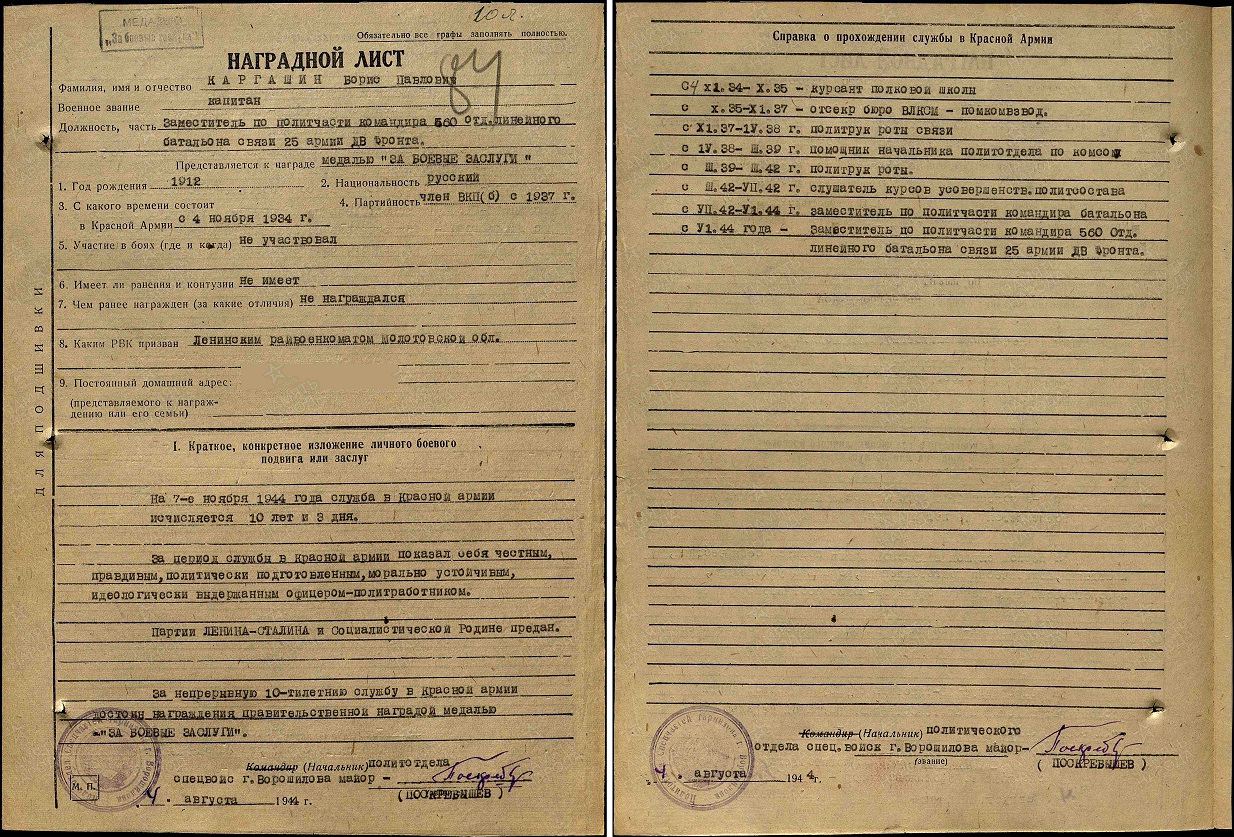 10 л.
МЕДАЛЬЮ
„За боевые заслуги"
Обязательно все графы заполнять полностью.
НАГРАДНОЙ ЛИСТ
84
Фамилия, имя и отчество КАРГАШИН Борис Павлович
Военное звание капитан
Должность, часть Заместитель по политчасти командира 560 Отд.линейного
батальона связи 25 армии ДВ Фронта.
Представляется к награде медалью "ЗА БОЕВЫЕ ЗАСЛУГИ"
1. Год рождения 1912 2. Национальность русский
3. С какого времени состоит 4. Партийность член ВКП(б) с 1937 г.
в Красной Армии с 4 ноября 1934 г.
5. Участие в боях (где и когда) не участвовал
6. Имеет ли ранения и контузии не имеет
7. Чем ранее награжден (за какие отличия) не награждался
8. Каким РВК призван Ленинским райвоенкоматом Молотовской обл.
9. Постоянный домашний адрес:
(представляемого к награж-
дению или его семьи)
ДЛЯ ПОДШИВКИ
I. Краткое, конкретное изложение личного боевого
подвига или заслуг
На 7-е ноября 1944 года служба в Красной армии
исчисляется 10 лет и 3 дня.
За период службы в Красной армии показал себя честным,
правдивым,политически подготовленным,морально устойчивым,
идеологически выдержанным офицером-политработником.
Партии ЛЕНИНА-СТАЛИНА и Социалистической Родине предан.
За непрерывную 10-тилетнию службу в Красной армии
достоин награждения правительственной наградой медалью
-"ЗА БОЕВЫЕ ЗАСЛУГИ".
Командир (Начальник) политотдела
спецвойс г.Ворошилова майор -
(ПОСКРЕБЫШЕВ)
М. П.
4. августа 1944 г.
Справка о прохождении службы в Красной Армии
С 4 X1.34- X.35 - курсант полковой школы
с X.35-X1.37 - отсекр бюро ВЛКСМ - помкомвзвод.
с X1.37-1У.38 г. политрук роты связи
с 1У.38- Ш.39 г. помощник начальника политотдела по комсом
с Ш.39- Ш.42 г. политрук роты.
с Ш.42-УП.42 г. слушатель курсов усовершенств.политсостава
с УП.42-У1.44 г. заместитель по политчасти командира батальона
с У1.44 года - Заместитель по политчасти командира 560 Отд.
линейного батальона связи 25 армии ДВ Фронта.
Командир (Начальник) политического
отдела спец.войск г.Ворошилова майор-
(звание)
(ПОСКРЕБЫШЕВ)
4. августа 1944 г.